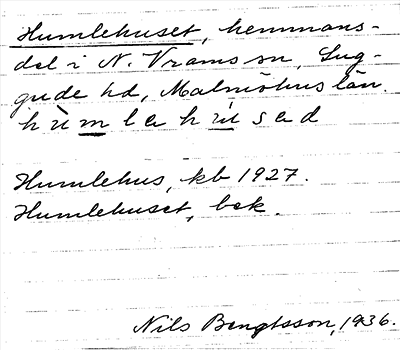 Humlehuset, hemmans-
del i N. Vrams sn, Lug-
gude hd, Malmöhus län.
hùmlahúsad
Humlehus, kb 1927.
Humlehuset, bek.
Nils Bengtsson, 1936.